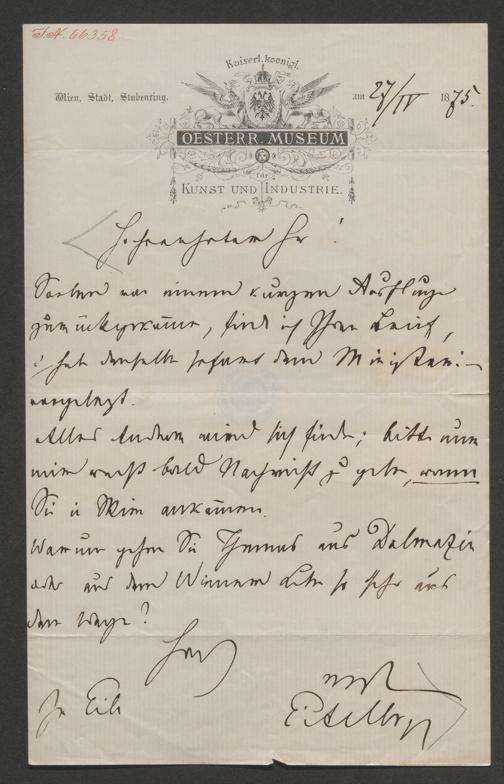 I.N. 66358
Kaiserl. koenigl.
Wien, Stadt, Stubenring. am 27/IV 1875.
OESTERR. MUSEUM
für
KUNST UND INDUSTRIE.
Hochverehrter Hr !
Soeben von einem kurzen Ausfluge
zurückgekommen, finde ich Ihren Brief,
u habe denselben sofort dem Ministerium
vorgelegt.
Alles Andere wird sich finden; bitte nun
mir recht bald Nachricht zu geben, wann
Sie in Wien ankommen.
Warum gehen Sie Themas aus Dalmazien
oder aus dem Wiener Leben so sehr aus
dem Wege?
In Eile
Eitelberger